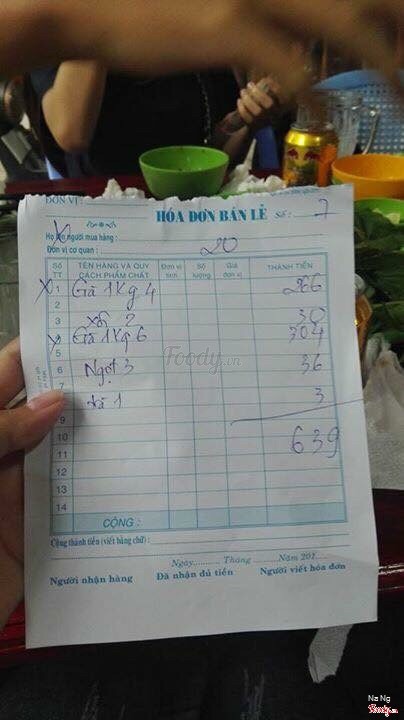 ĐƠN VỊ :
HÓA ĐƠN BÁN LẺ Số : 7
Họ tên người mua hàng :
Đơn vị cơ quan : 20
Số TT TÊN HÀNG VÀ QUY CÁCH PHẨM CHẤT Đơn vị tính Số lượng Giá đơn vị THÀNH TIỀN
1 Gà 1Kg 4 266
2
3 xôi 2 30
Gà 1Kg 6 304
5
6 Ngọt 3 36
7
đá 1 3
9
10 639
11
12
13
14
CỘNG :
Cộng thành tiền (viết bằng chữ) :
Ngày Tháng Năm 201
Người nhận hàng Đã nhận đủ tiền Người viết hóa đơn
Foody.vn
Na Ng
Foody.vn